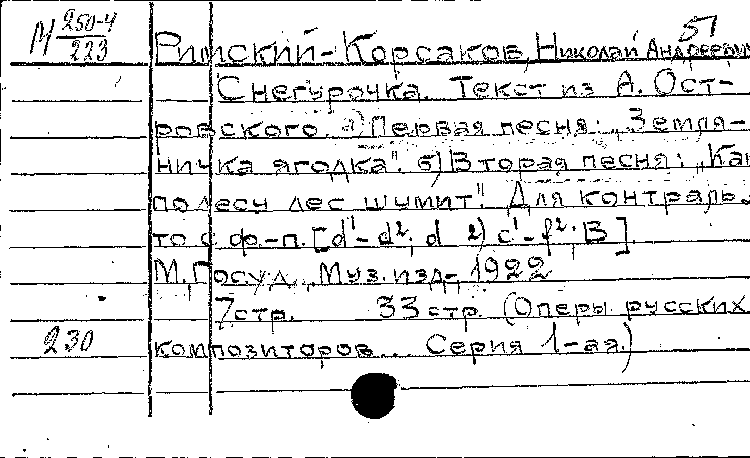 М 250-4
223
57
Римский-Корсаков, Николай Андреевич
Снегурочка. Текст из А. Ост-
ровского. а) Первая песня: „Земля-
ничка ягодка". б) Вторая песня: „Как
по лесу лес шумит". Для контраль-
то с ф.-п. [d¹-d², d 2) c¹-f². B].
М., Госуд. Муз. изд-, 1922
7 стр. 33 стр. (Оперы русских
230
композиторов... Серия 1-ая.)